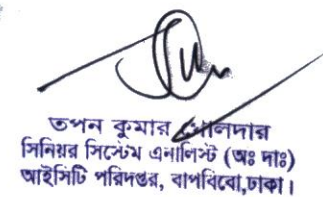 তপন কুমার
সিনিয়র সিস্টেম এনালিস্ট (অঃ দাঃ)
আইসিটি পরিদপ্তর, বাপবিবো,ঢাকা।